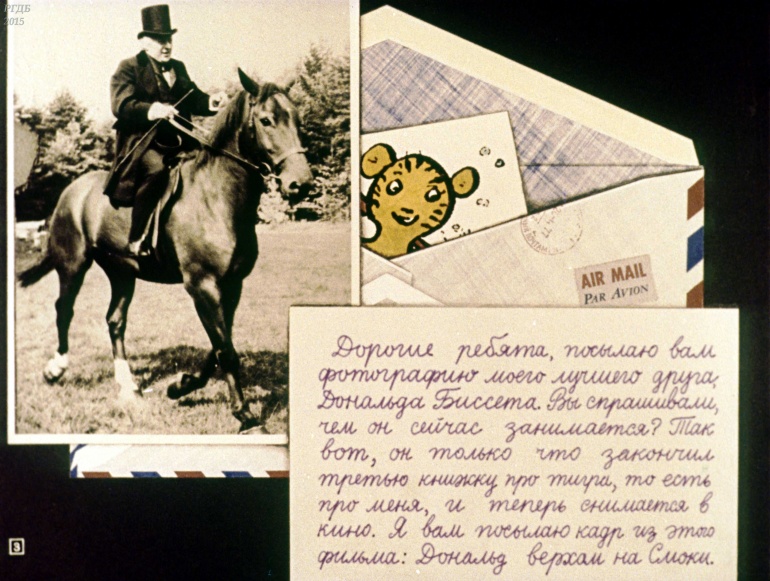 РГДБ
2015
AIR MAIL
PAR AVION
Дорогие ребята, посылаю вам
фотографию моего лучшего друга,
Дональда Биссета. Вы спрашивали,
чем он сейчас занимается? Так
вот, он только что закончил
третью книжку про тигра, то есть
про меня, и теперь снимается в
кино. Я вам посылаю кадр из этого
фильма: Дональд верхом на Смоки.
3